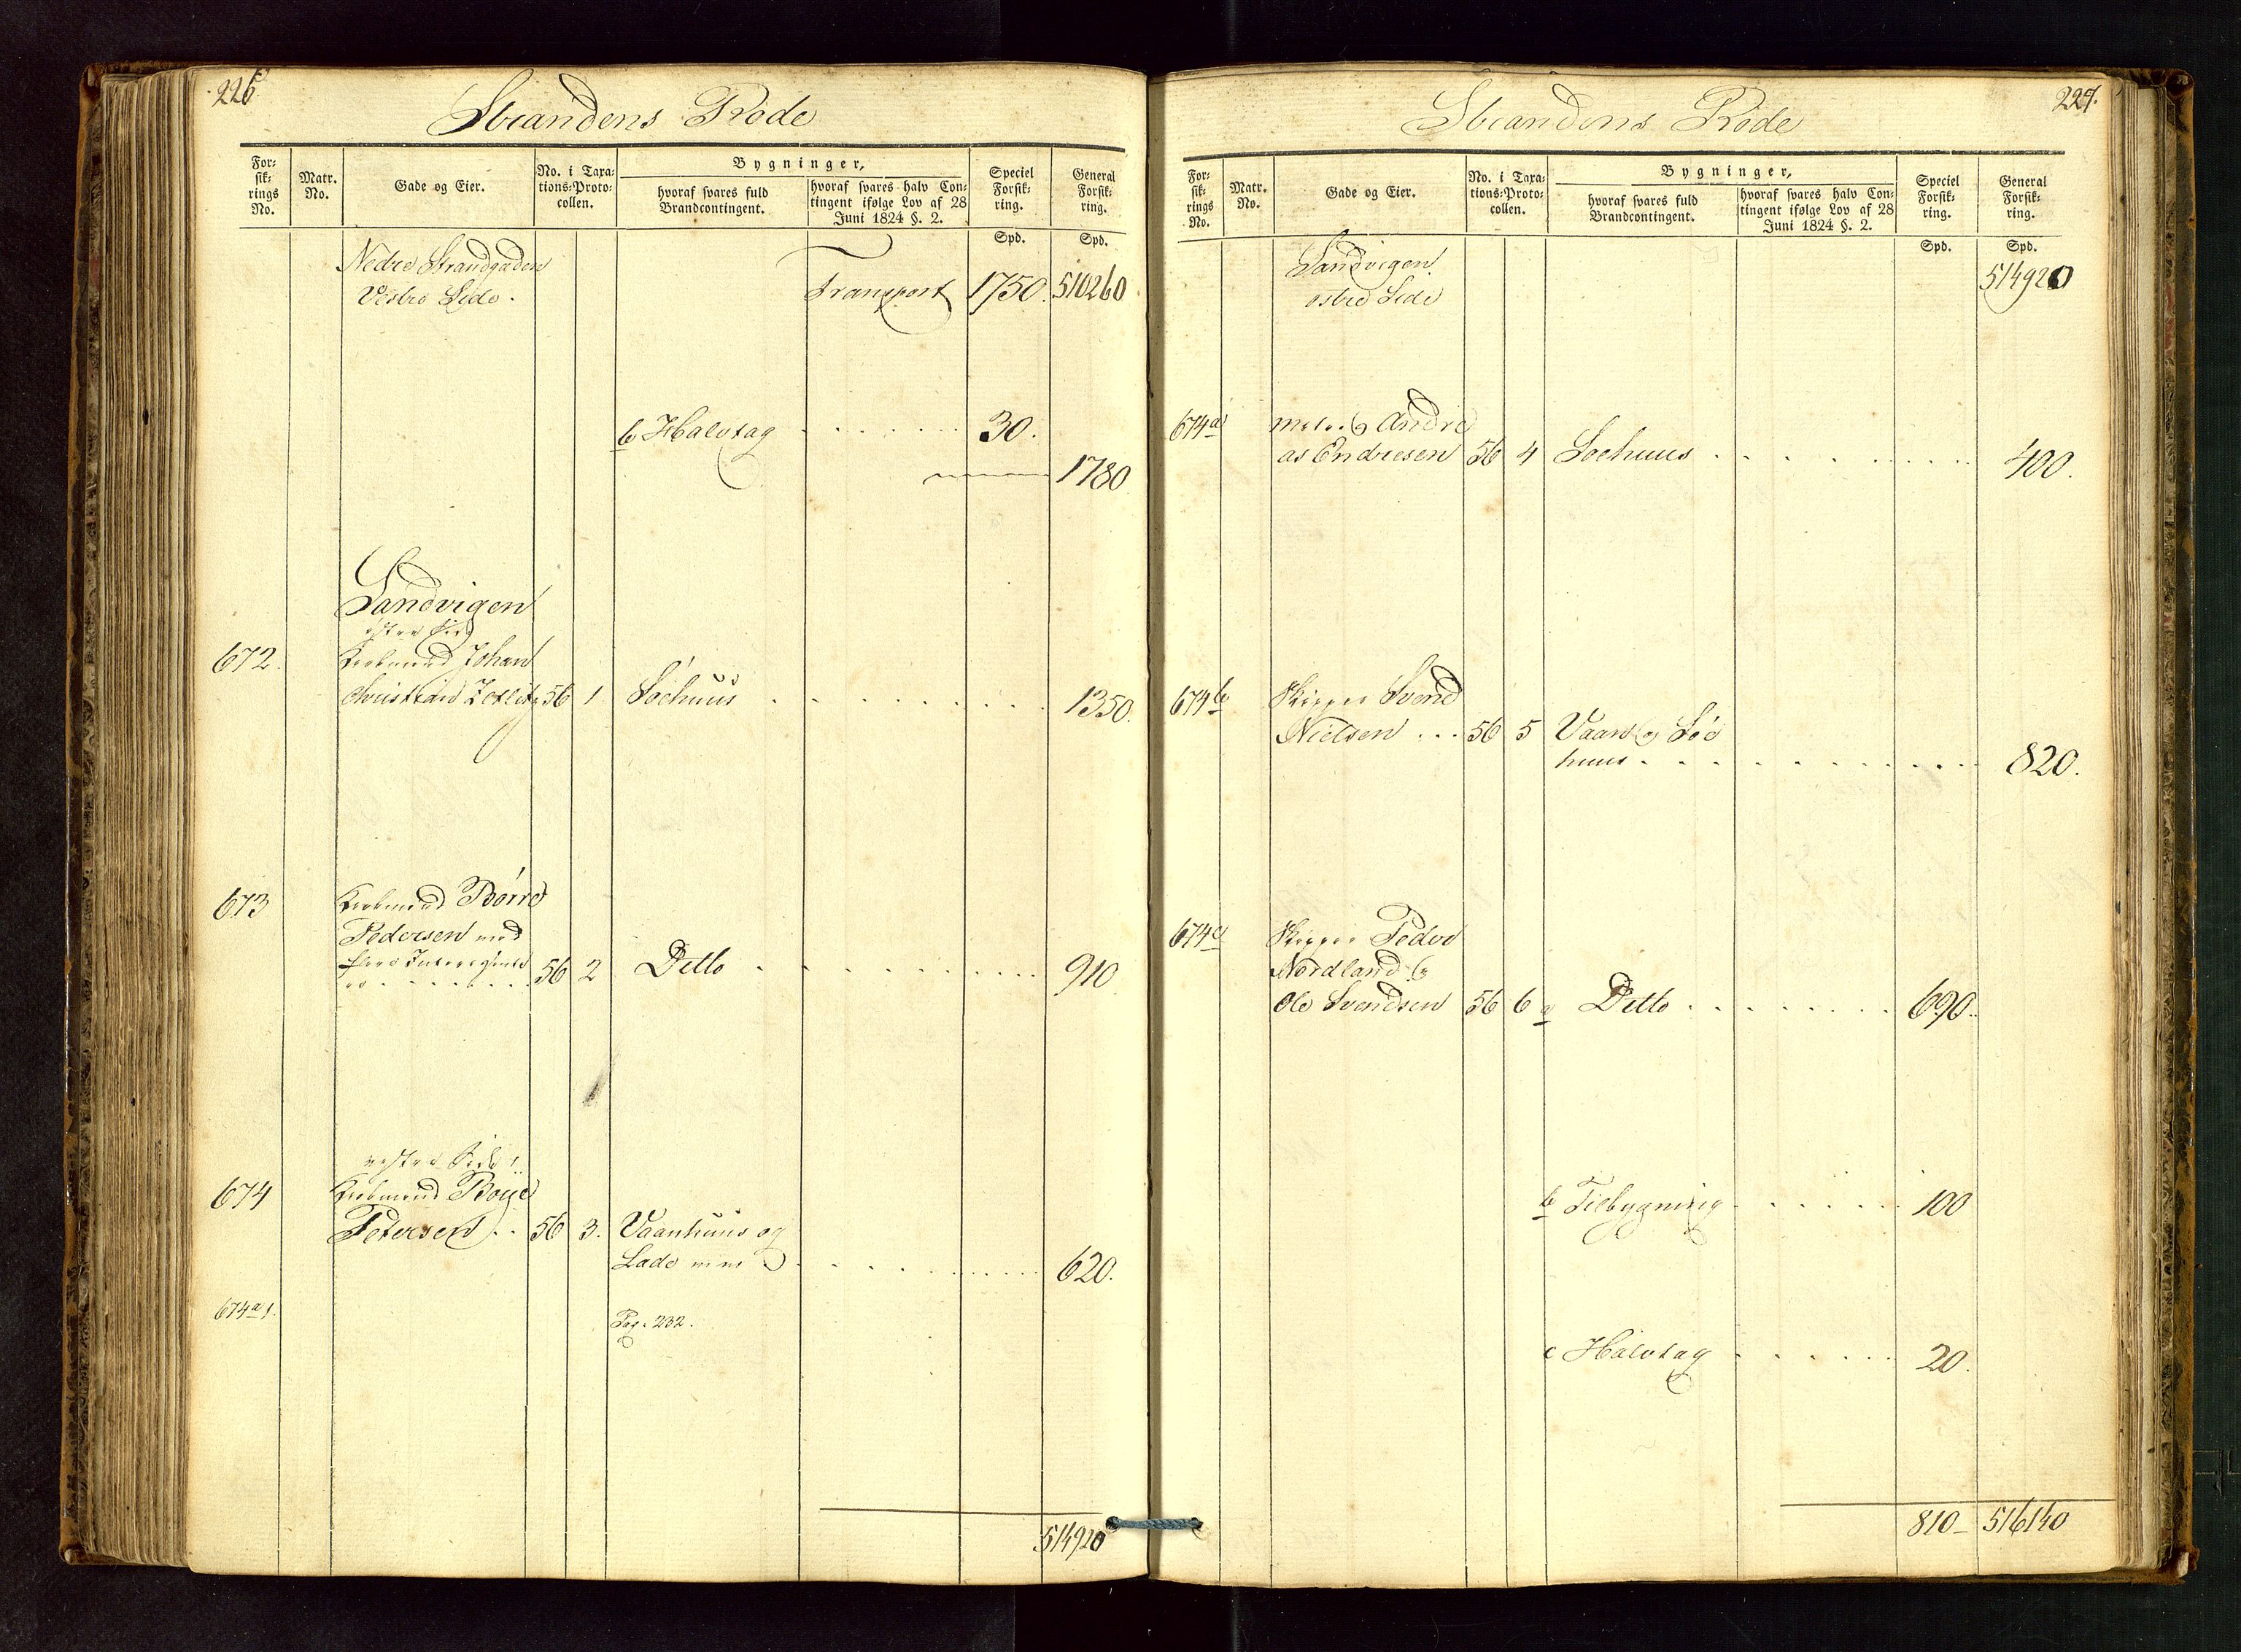 226.
Strandens Rode
For:
sik:
rings
No.
Matr.
No.
Gade og Eier.
No. i Taxa:
tions:Proto:
collen.
Bygninger,
hvoraf svares fuld
Brandcontingent.
hvoraf svares halv Con:
tingent ifølge Lov af 28
Juni 1824 §. 2.
Speciel
Forsik:
ring.
General
Forsik:
ring.
Spd. Spd.
Nedre Strandgaden
Vestre Side.
Transport 1750. 510260
b Halvtag . . . . . . 30.
1780
Sandvigen
østre Side
672. Kiøbmand Johan
Christian Zetlitz 56 1 Søehuus . . . . . . 1350.
673 Kiøbmand Børre
Pedersen med
flere Interessente
re . . . . . . 56 2 Ditto . . . . . . 910
vestre Side
674 Kiøbmand Boye
Petersen . . 56 3. Vaanhuus og
Lade . . . . . . 620.
674 a 1. Pag. 232.
514920
227.
Strandens Rode
For:
sik:
rings
No.
Matr.
No.
Gade og Eier.
No. i Taxa:
tions:Proto:
collen.
Bygninger,
hvoraf svares fuld
Brandcontingent.
hvoraf svares halv Con:
tingent ifølge Lov af 28
Juni 1824 §. 2.
Speciel
Forsik:
ring.
General
Forsik:
ring.
Spd. Spd.
Sandvigen 514920
østre Side
674 a og Andre
as Endresen 56 4 Søehuus . . . . . . 400.
674 b Skipper Svend
Nielsen . . . 56 5 Vaan og Søe
huus . . . . . . 820.
674 c Skipper Peder
Nordland og
Ole Svendsen 56 6 a Ditto . . . . . . 690.
b Tilbygning . . . . . . 100
c Halvtag . . . . . . 20.
810 – 516140